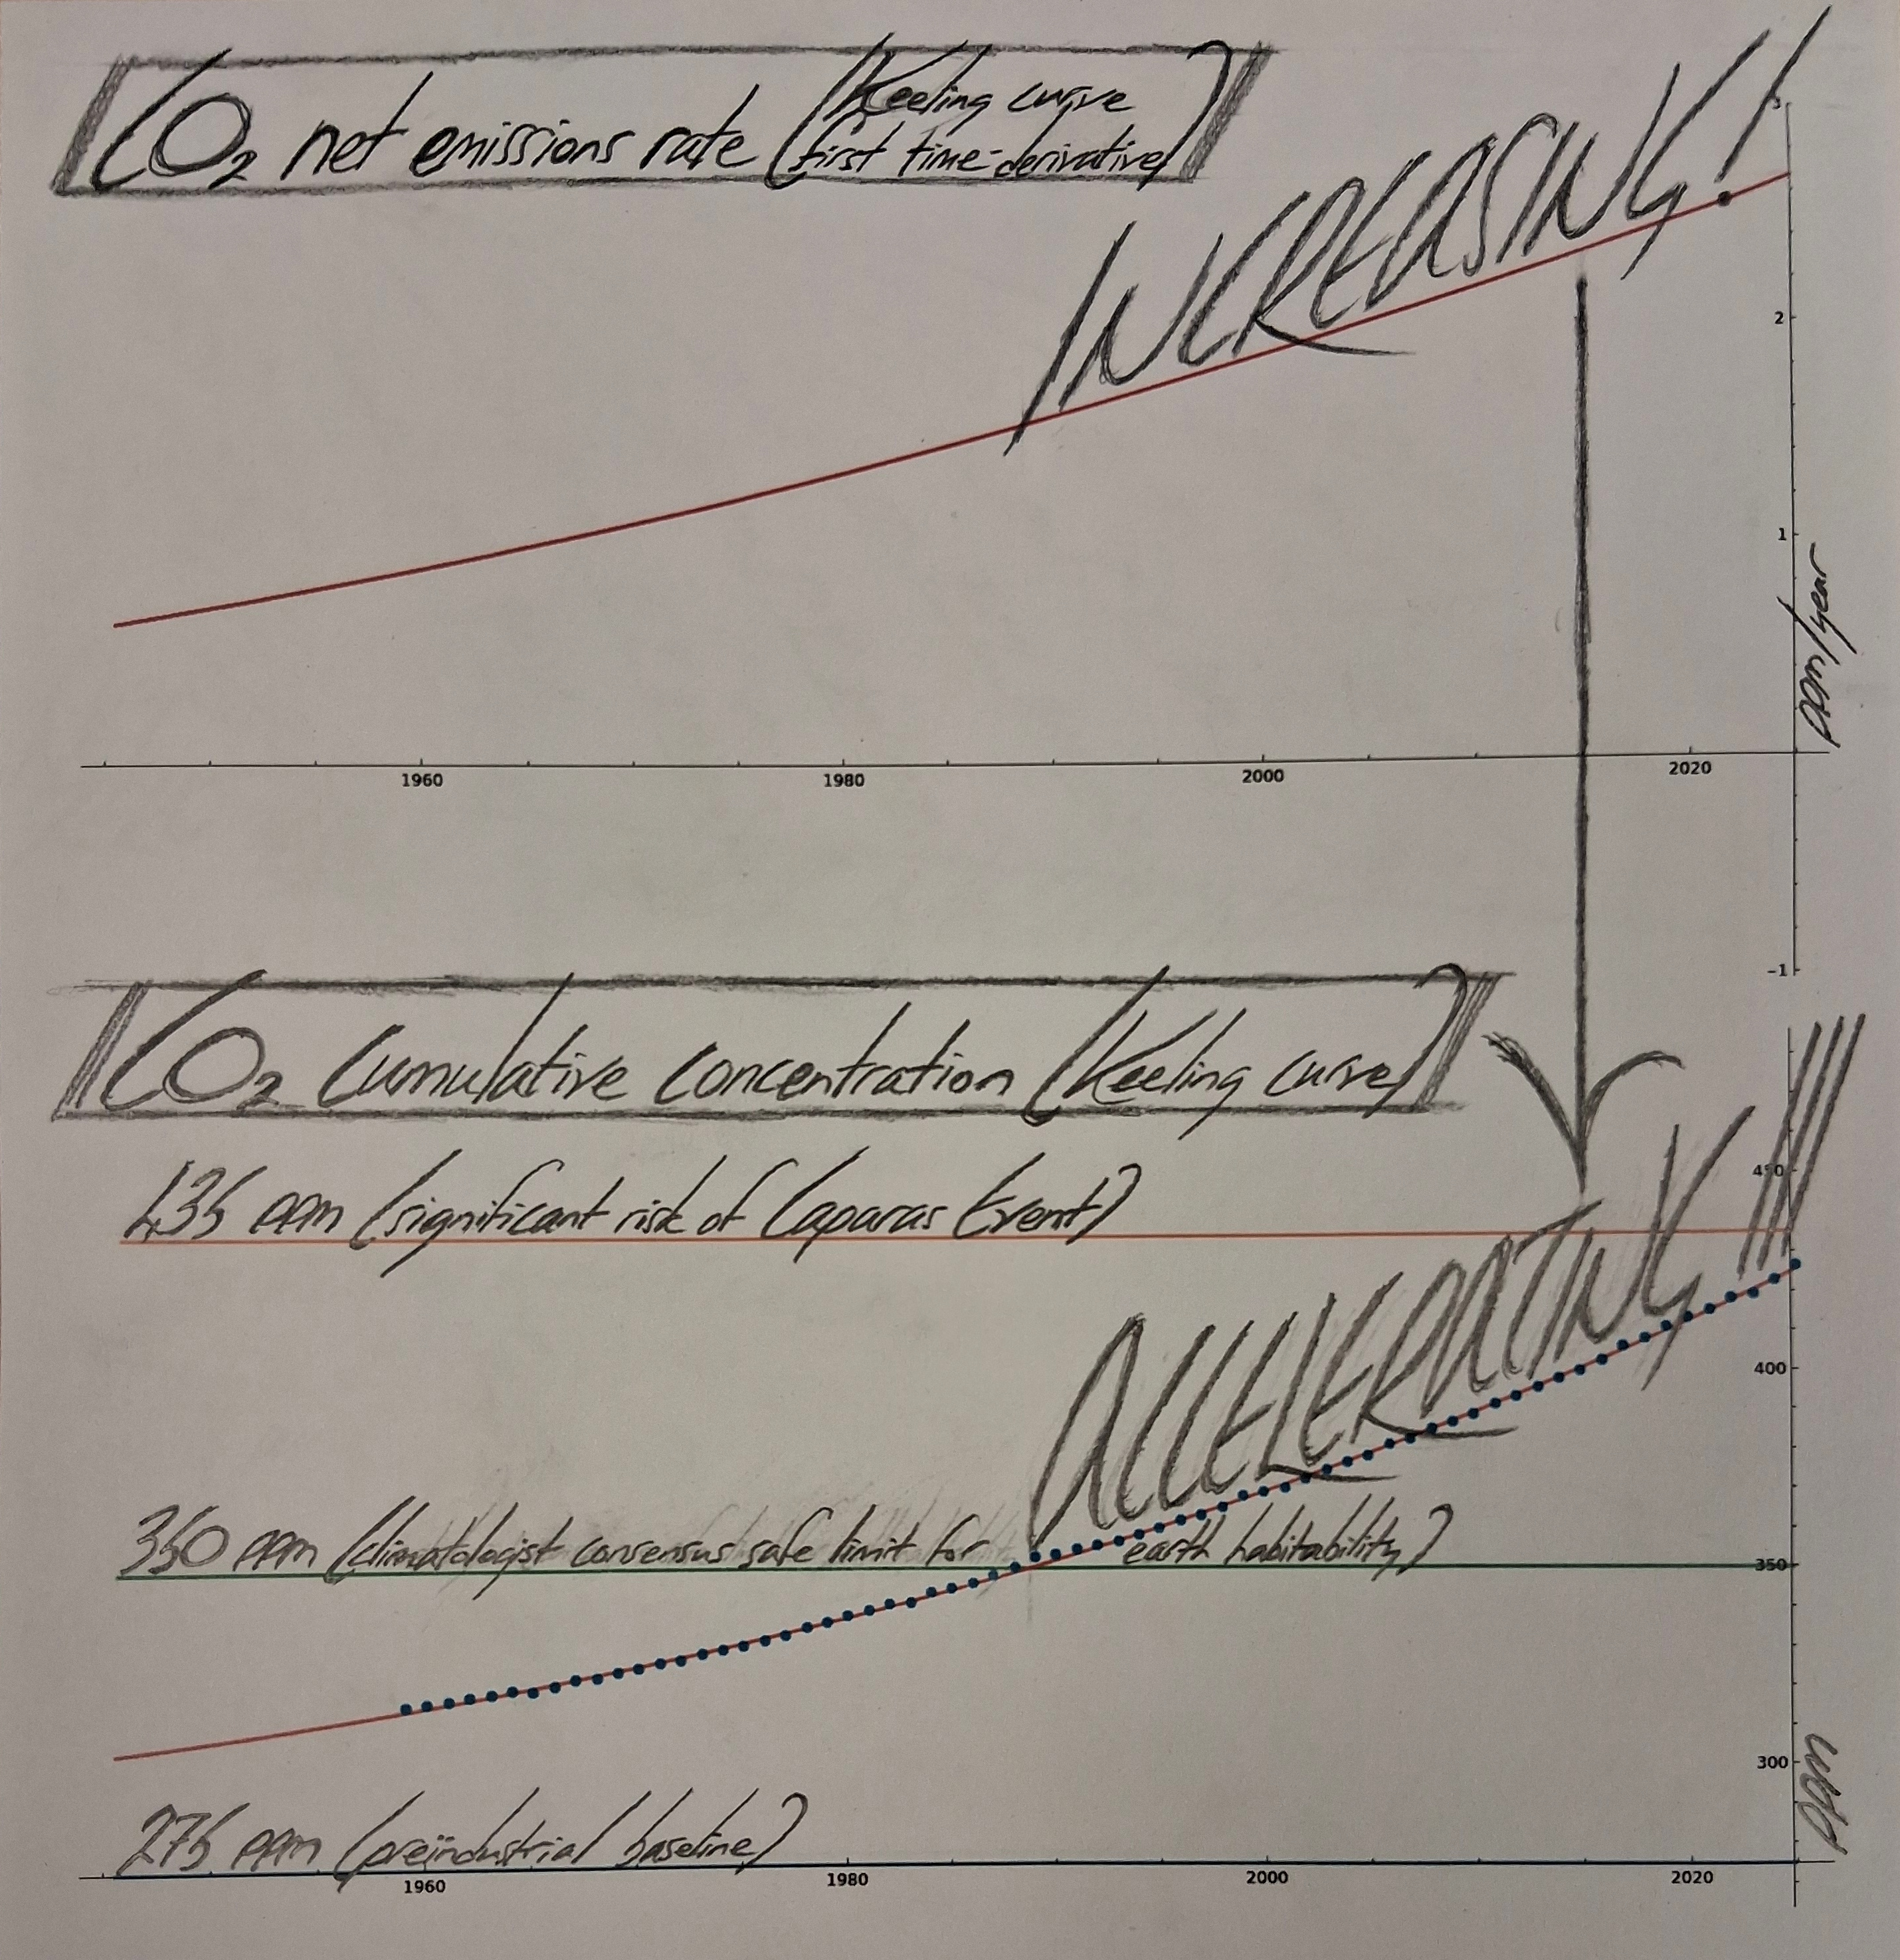 CO₂ net emissions rate (Keeling curve
first time-derivative)
INCREASING!
3
2
1
ppm/year
1960 1980 2000 2020
-1
CO₂ Cumulative Concentration (Keeling curve)
435 ppm (significant risk of Caparas Event)
450
ACCELERATING!!!
400
350 ppm (climatologist consensus safe limit for earth habitability)
350
300
ppm
275 ppm (preïndustrial baseline)
1960 1980 2000 2020